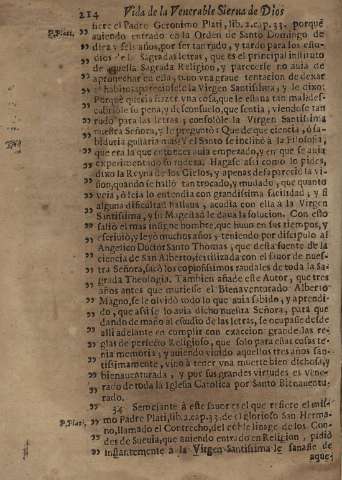 214 Vida de la Venerable Sierva de Dios
fiere el Padre Geronimo Plati, lib. 2. cap. 33. porquè
P. Plati, auiendo entrado en la Orden de Santo Domingo de
diez y seis años, por ser tan rudo, y tardo para los estu-
dios de las Sagradas letras, que es el principal instituto
de aquella Sagrada Religion, y parecerle no auia de
aprouechar en ella, tuuo vna graue tentacion de dexar
el habito: apareciosele la Virgen Santissima, y le dixo:
Porquè queria hazer vna cosa, que le estaua tan mal? des-
cubriòle su pena, y desconsuelo, que sentia, viendose tan
rudo para las letras; consolòle la Virgen Santissima
nuestra Señora, y le preguntò: Que de que ciencia, ò sa-
biduria gustaria mas? y el Santo se inclinò à la Filosofia,
que era la que entonces auia empezado, y en que se auia
experimentado su rudeza. Hagase assi como lo pides,
dixo la Reyna de los Cielos, y apenas desapareciò la vi-
sion, quando se hallò tan trocado, y mudado, que quanto
veia, ò leia lo entendia con grandissima facilidad; y si
alguna dificultad hallaua, acudia con ella à la Virgen
Santissima, y su Magestad le daua la solucion. Con esto
saliò el mas insigne hombre, que huuo en sus tiempos, y
escriuiò, y leyò muchos años, teniendo por discipulo al
Angelico Doctor Santo Thomas, que desta fuente de la
ciencia de San Alberto, fertilizada con el fauor de nues-
tra Señora, sacò los copiosissimos raudales de toda la Sa-
grada Theologia. Tambien añade este Autor, que tres
años antes que muriesse el Bienauenturado Alberto
Magno, se le oluidò todo lo que auia sabido, y aprendi-
do, que assi se lo auia dicho nuestra Señora, para que
dando de mano al estudio de las letras, se ocupasse desde
alli adelante en cumplir con exaccion grande las re-
glas de perfecto Religioso, que solo para estas cosas te-
nia memoria; y auiendo viuido aquellos tres años san-
tissimamente, vino à tener vna muerte bien dichosa, y
bienauenturada, y por sus grandes virtudes es vene-
rado de toda la Iglesia Catolica por Santo Bienauentu-
rado.
34 Semejante à este fauor es el que refiere el mis-
P. Plati, mo Padre Plati, lib. 2. cap. 33. de el glorioso San Herma-
no, llamado el Contrecho, del noble linage de los Con-
des de Sueuia, que auiendo entrado en Religion, pidiò
instantemente à la Virgen Santissima le sanasse de
aque-